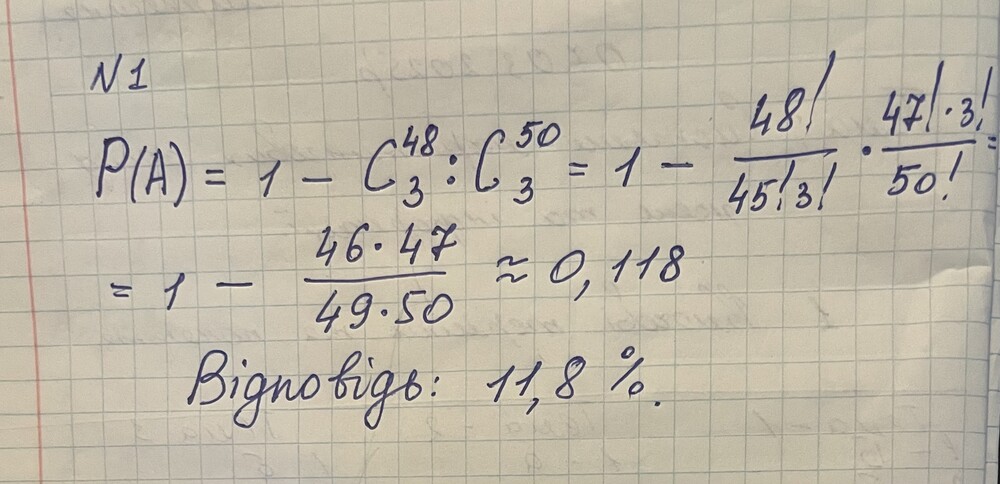 N1
P(A) = 1 - C₃⁴⁸ : C₃⁵⁰ = 1 - 48!/45!3! · 47!·3!/50! =
= 1 - 46·47/49·50 ≈ 0,118
Відповідь: 11,8 %.